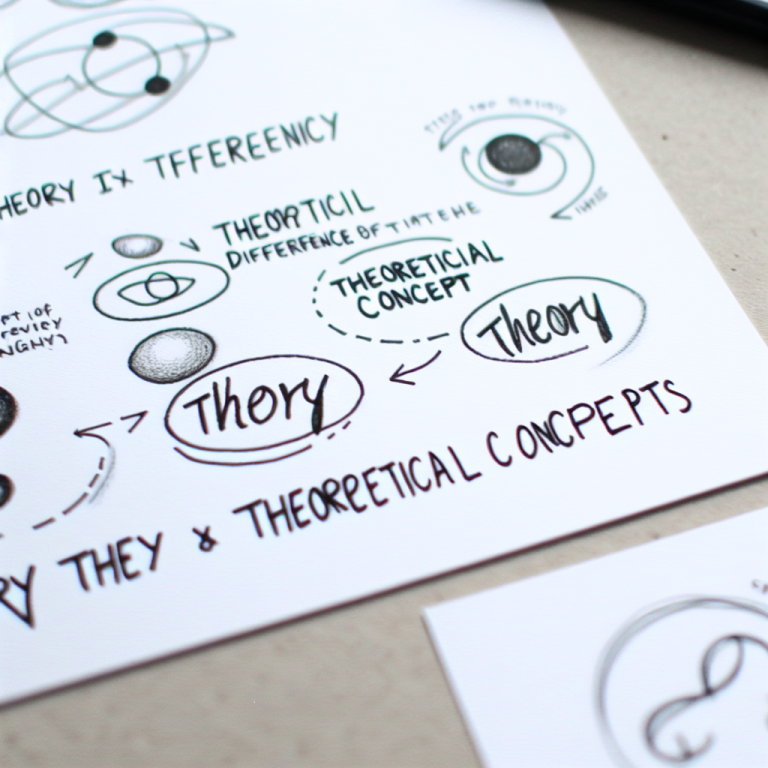 HEORY IX TFFEREENICY
THEORTICIL
DIFFERFENCE OF TIATEHE
THEORETICIAL
CONCEPT
Theory
Thory
RY THEY & THEORPEETICAL CONCPEPTS